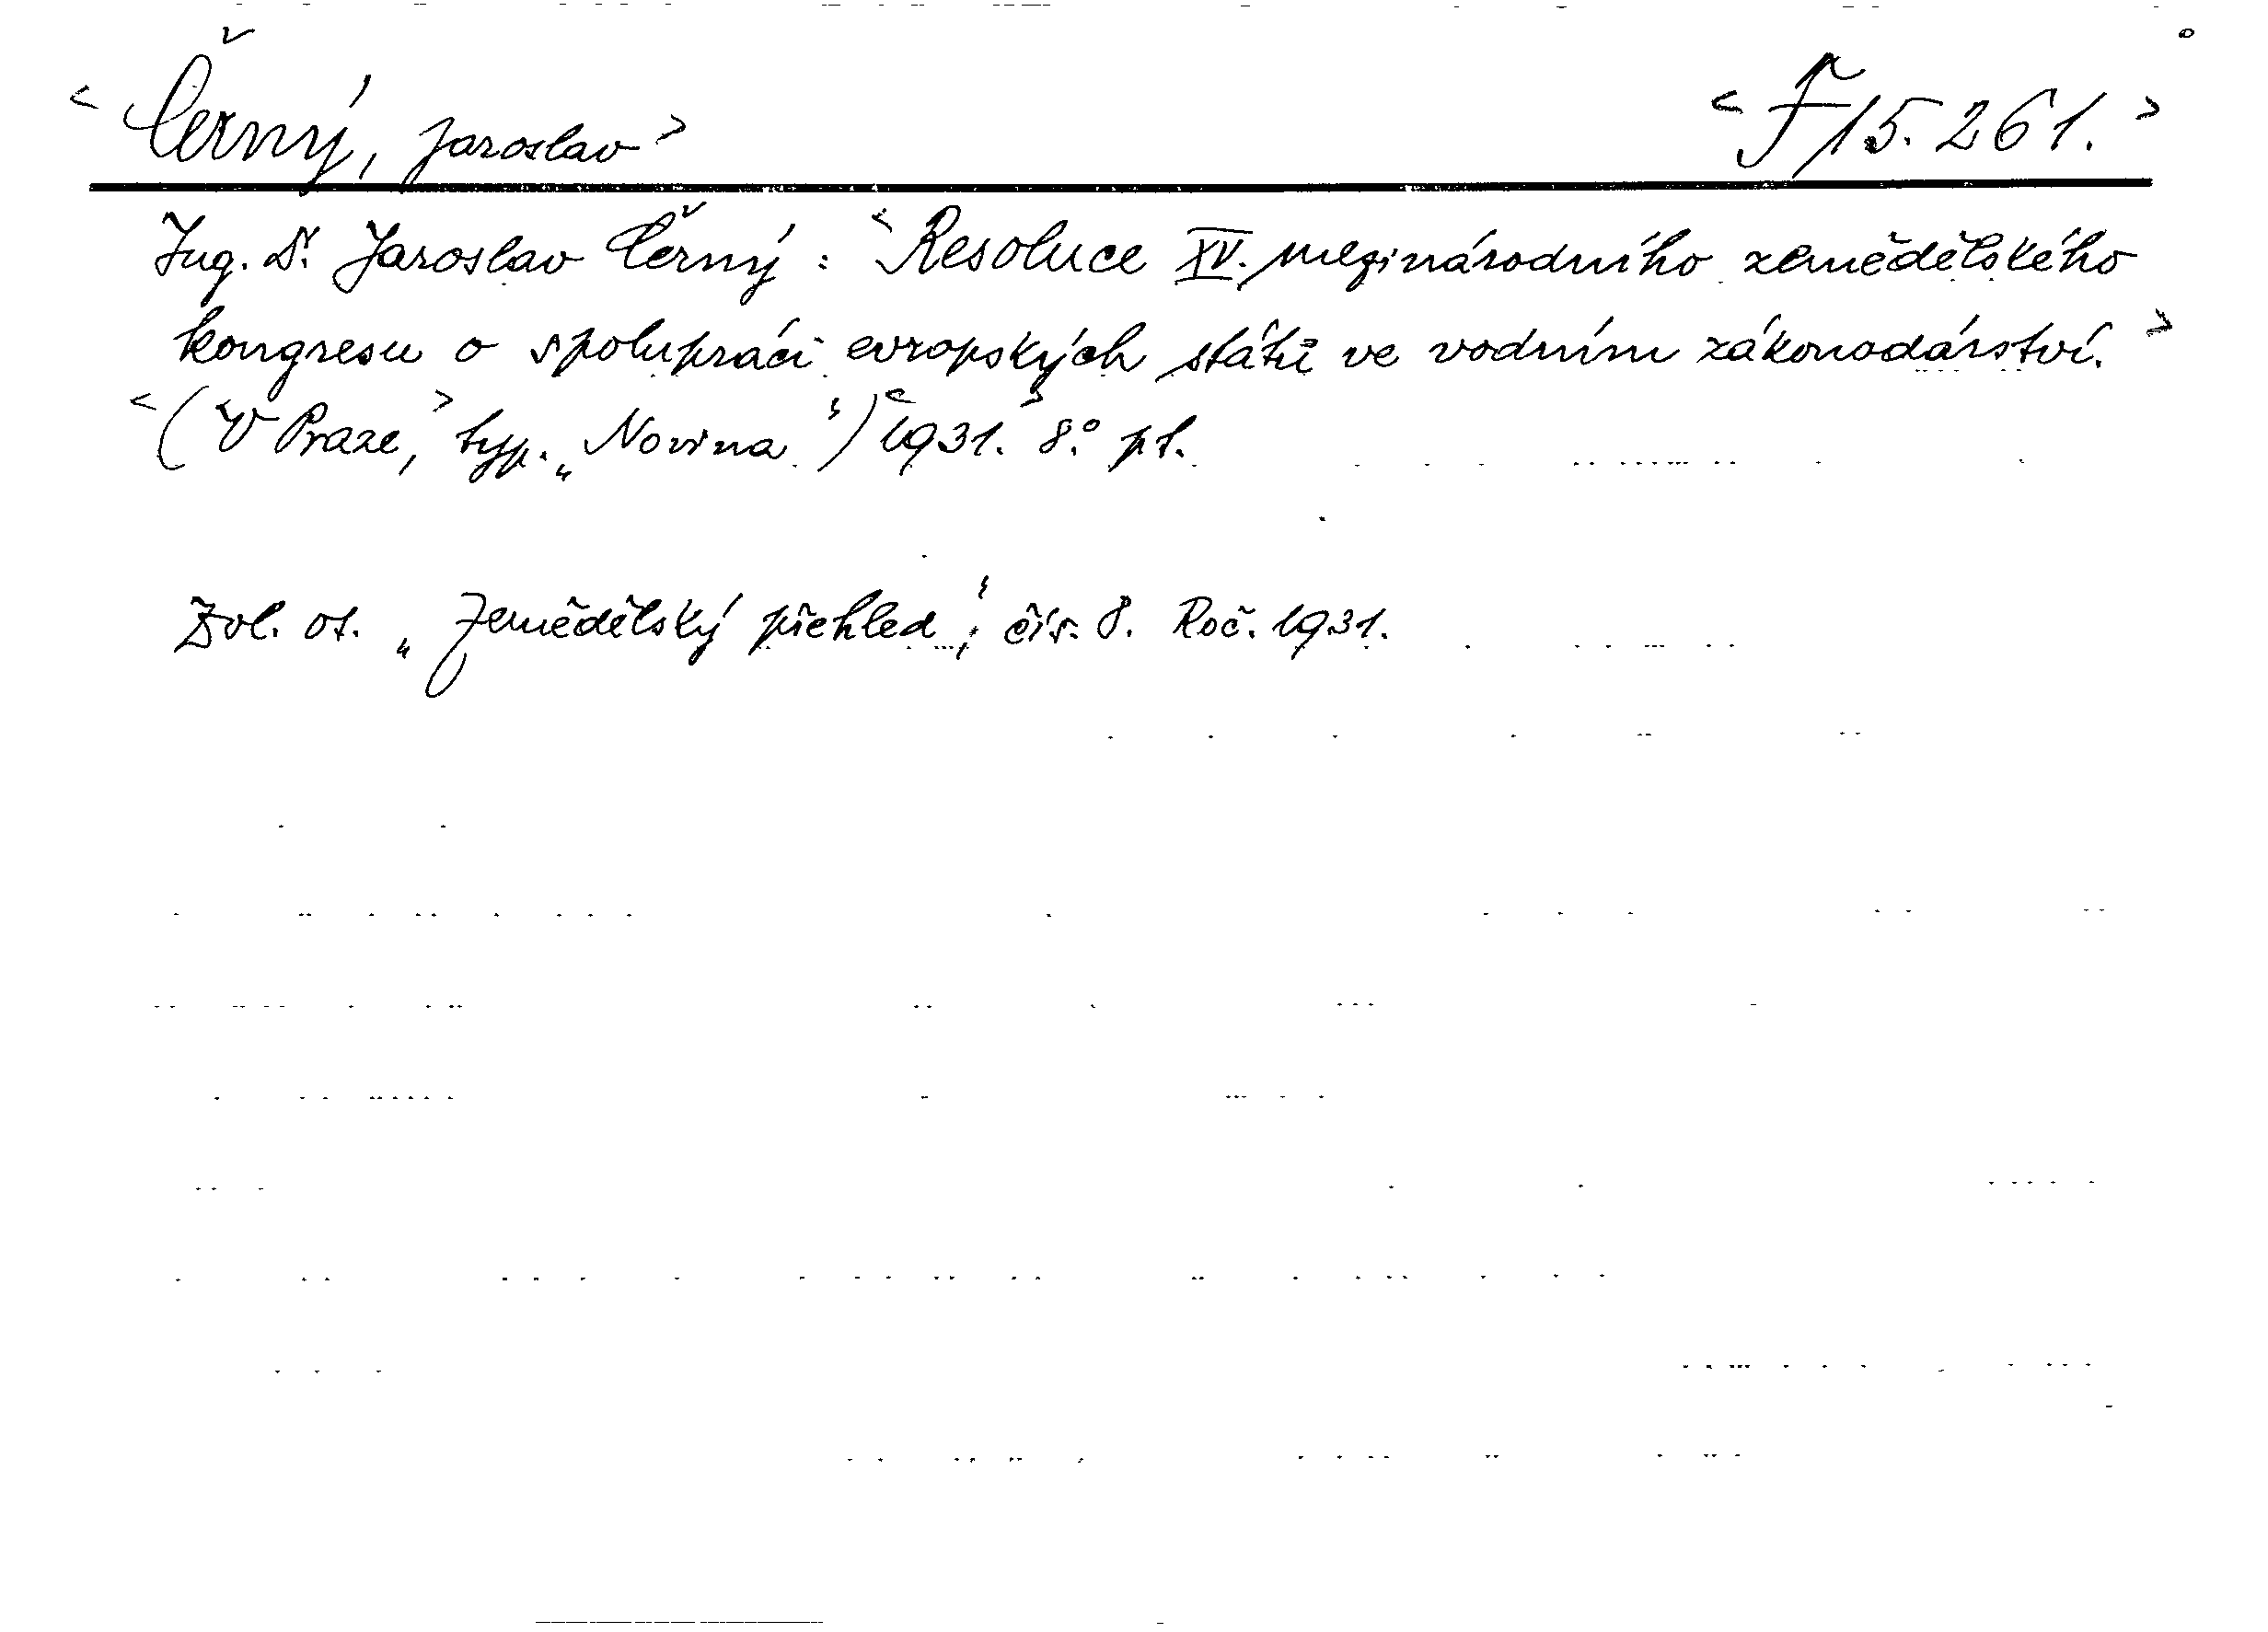 <Černý, Jaroslav> <F 15.261.>
Ing. Dr. Jaroslav Černý: <Resoluce XV. mezinárodního zemědělského
kongresu o spolupráci evropských států ve vodním zákonodárství.>
<(V Praze,> typ. „Novina") <1931.> 8.° pl.
Zvl. ot. „Zemědělský přehled", čís. 8. Roč. 1931.